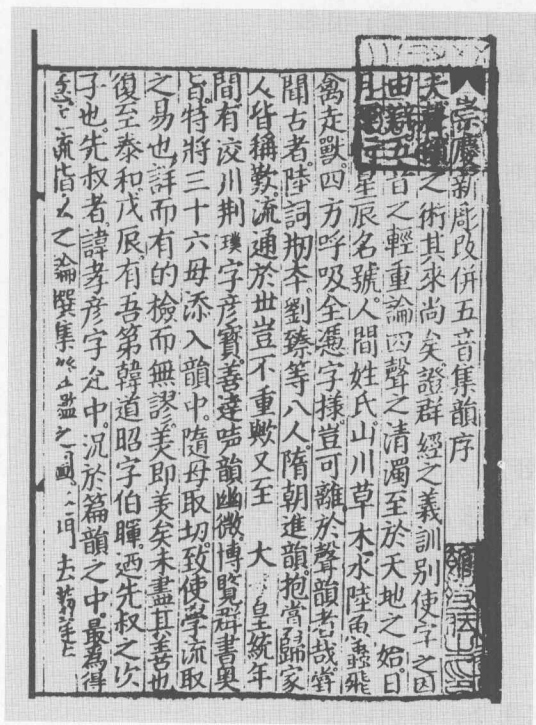 崇慶新彫改併五音集韻序
夫聲韻之術其來尚矣證群經之義訓別使字之因
由辯五音之輕重論四聲之清濁至於天地之始日
月星辰名號人間姓氏山川草木水陸魚蟲飛
禽走獸四方呼吸全憑字樣豈可離於聲韻者哉嘗
聞古者陸詞刱本劉臻等八人隋朝進韻抱賞歸家
人皆稱歎流通於世豈不重歟又至 大 皇統年
間有洨川荆璞字彦寶善達聲韻幽微博覽群書奥
旨特將三十六母添入韻中隨母取切致使學流取
之易也詳而有的檢而無謬美即美矣未盡其善也
復至泰和戊辰有吾弟韓道昭字伯暉迺先叔之次
子也先叔者諱孝彦字允中況於篇韻之中最為得